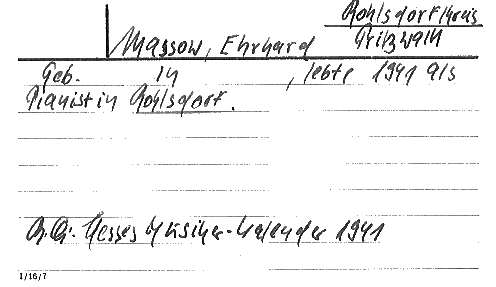 Rohlsdorf/Kreis
Pritzwalk
Massow, Ehrhard
Geb. in , lebte 1941 als
Pianist in Rohlsdorf.
Hesses Musiker-Kalender 1941
1/16/7